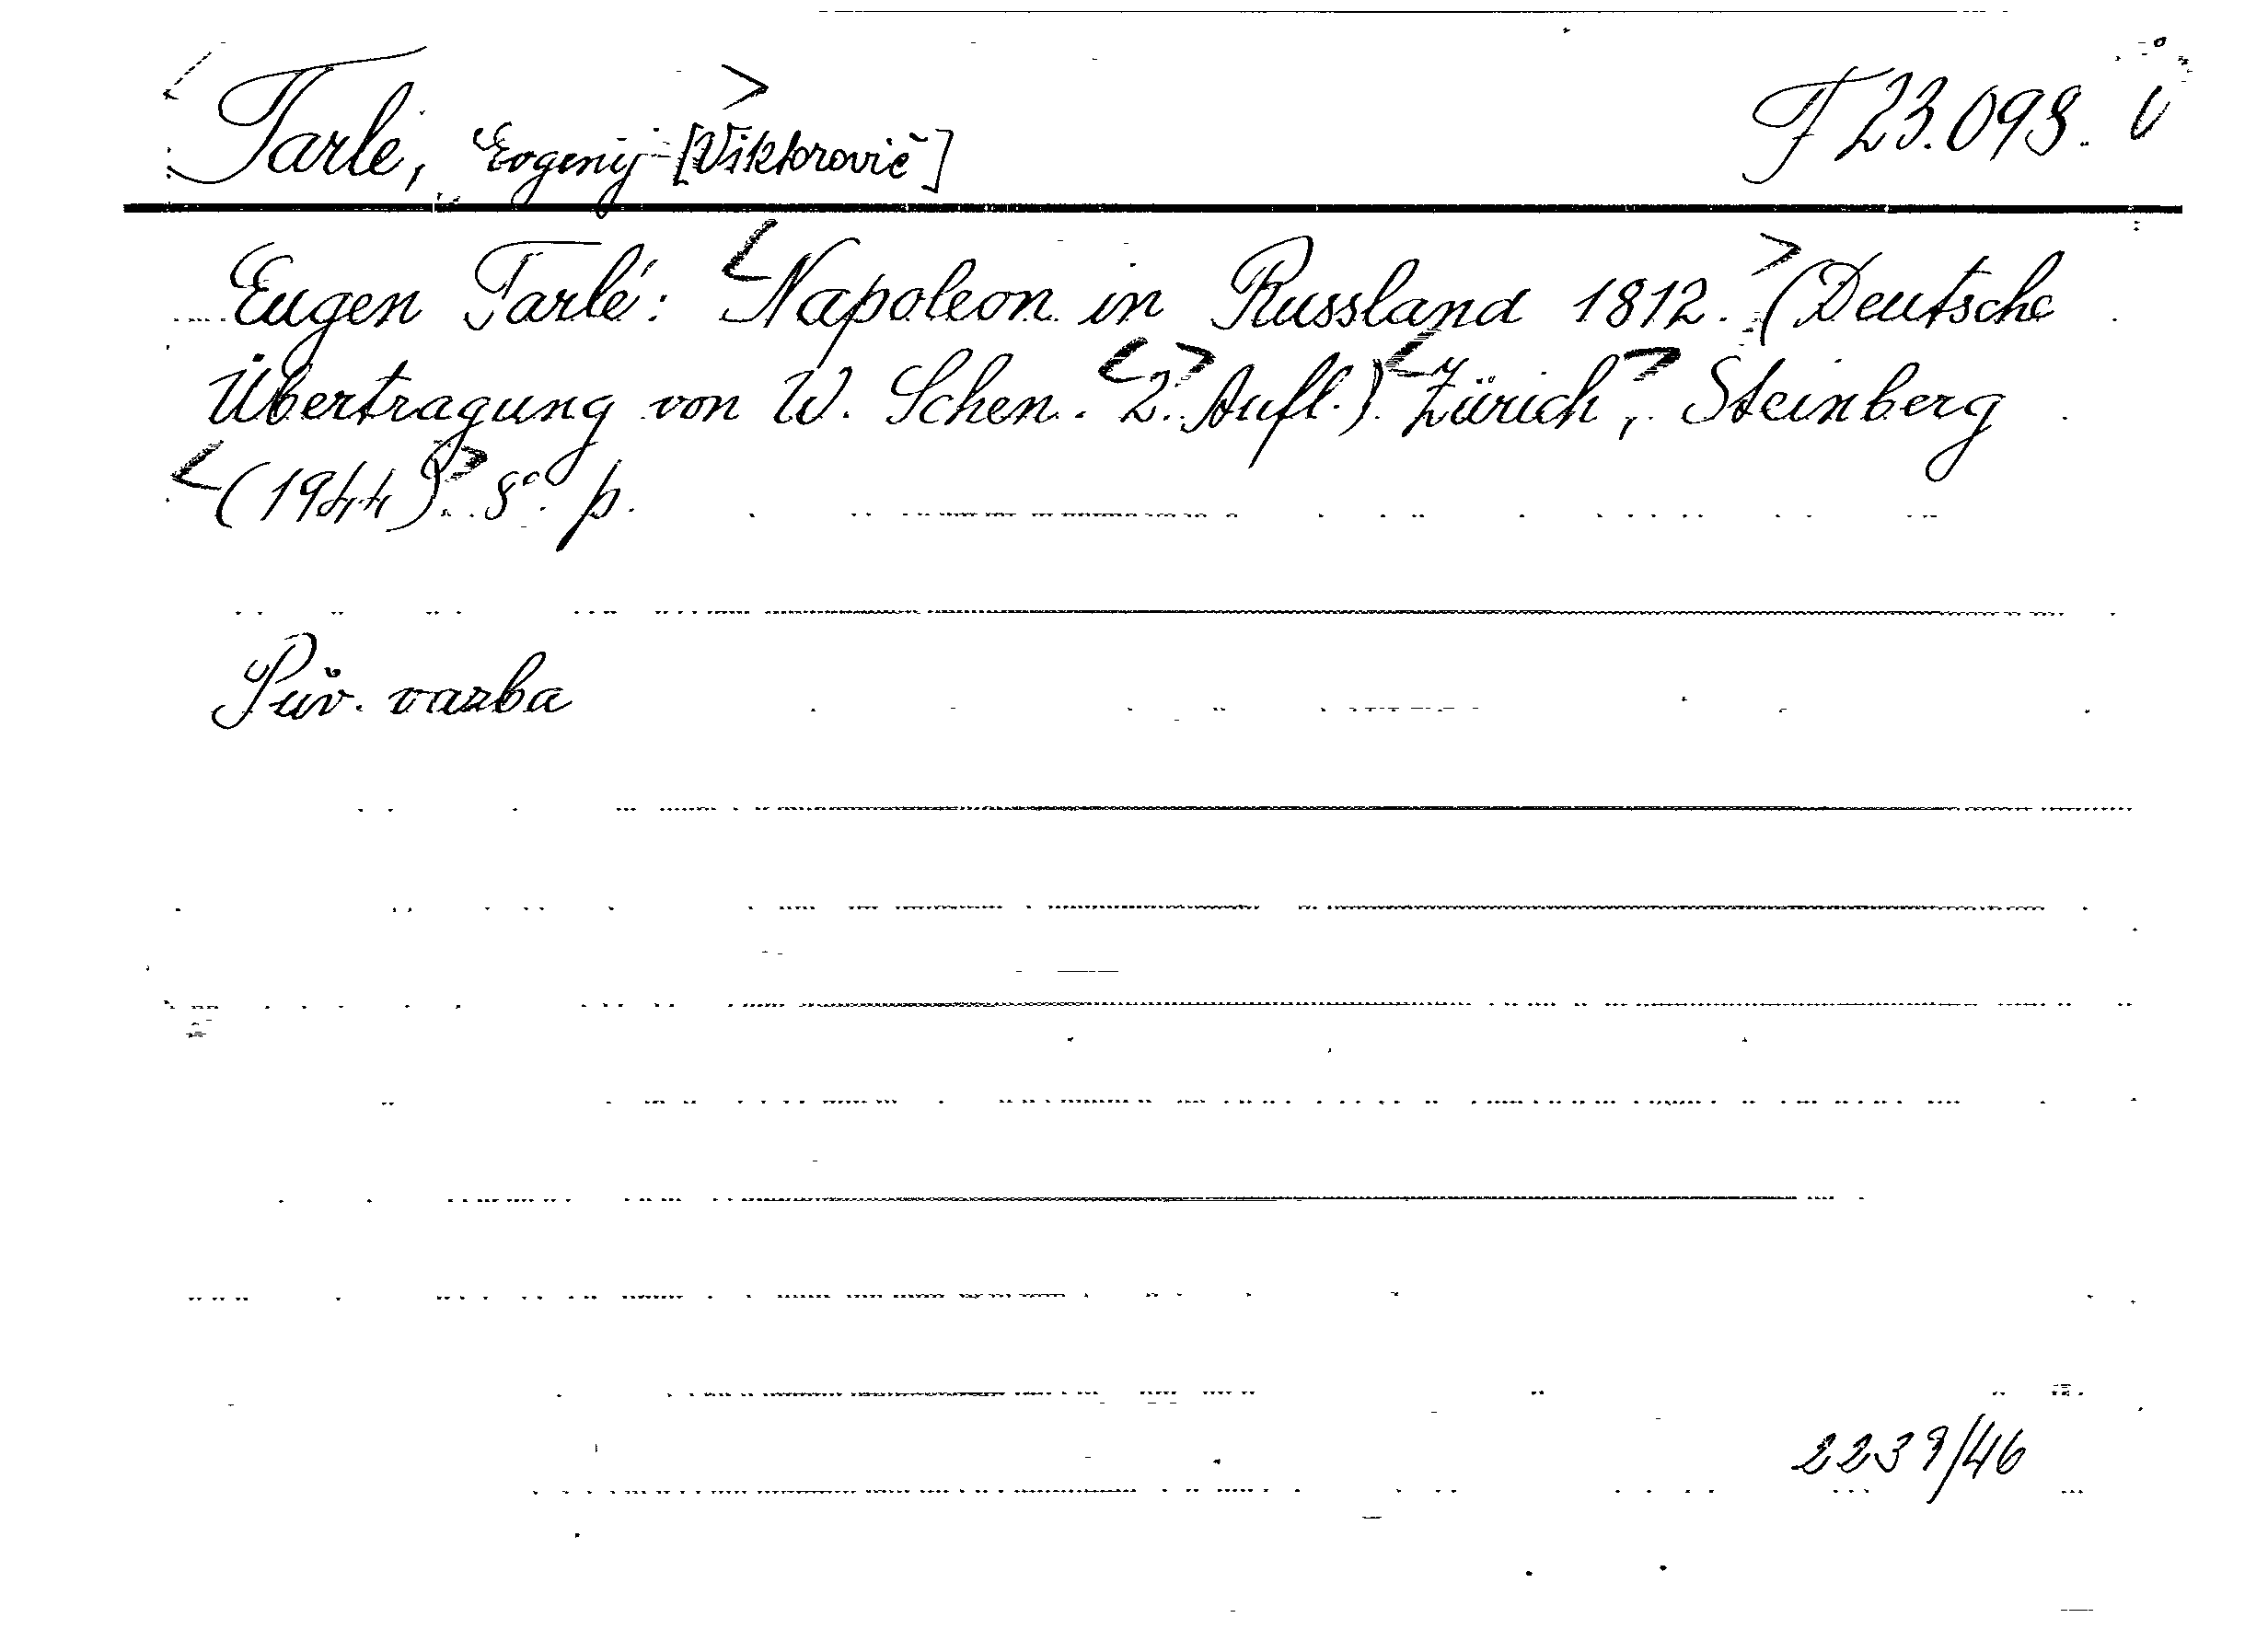 Tarle, Evgenij [Viktorovič] F 23.098.
Eugen Tarlé: Napoleon in Russland 1812. (Deutsche
Übertragung von W. Schen. 2. Aufl.) Zürich, Steinberg
(1944) 8°. p.
Pův. vazba
2239/46